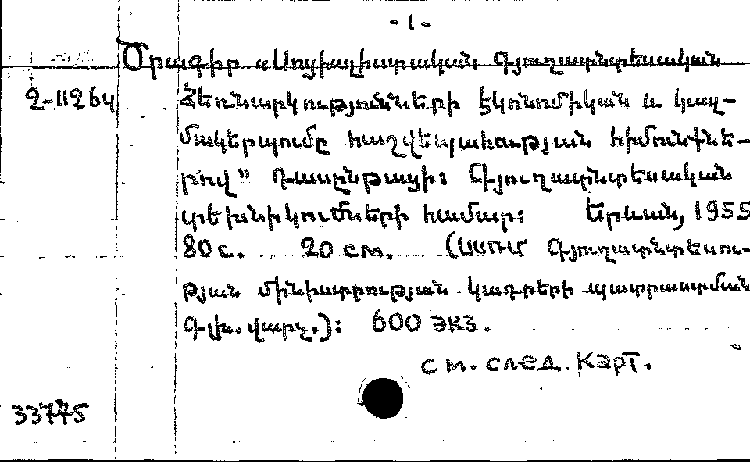 - 1 -
Ծրագիր «Սոցիալիստական Գյուղատնտեսական
2-11264 Ձեռնարկությունների էկոնոմիկան և կազ-
մակերպումը հաշվեպահության հիմունքնե-
րով" Դասընթացի: Գյուղատնտեսական
տեխնիկումների համար: Երևան, 1955
80 с. 20 см. (ՍՍՌՄ Գյուղատնտեսու-
թյան մինիստրության կադրերի պատրաստման
Գլխ. վարչ.): 600 экз.
см. след. карт.
33775